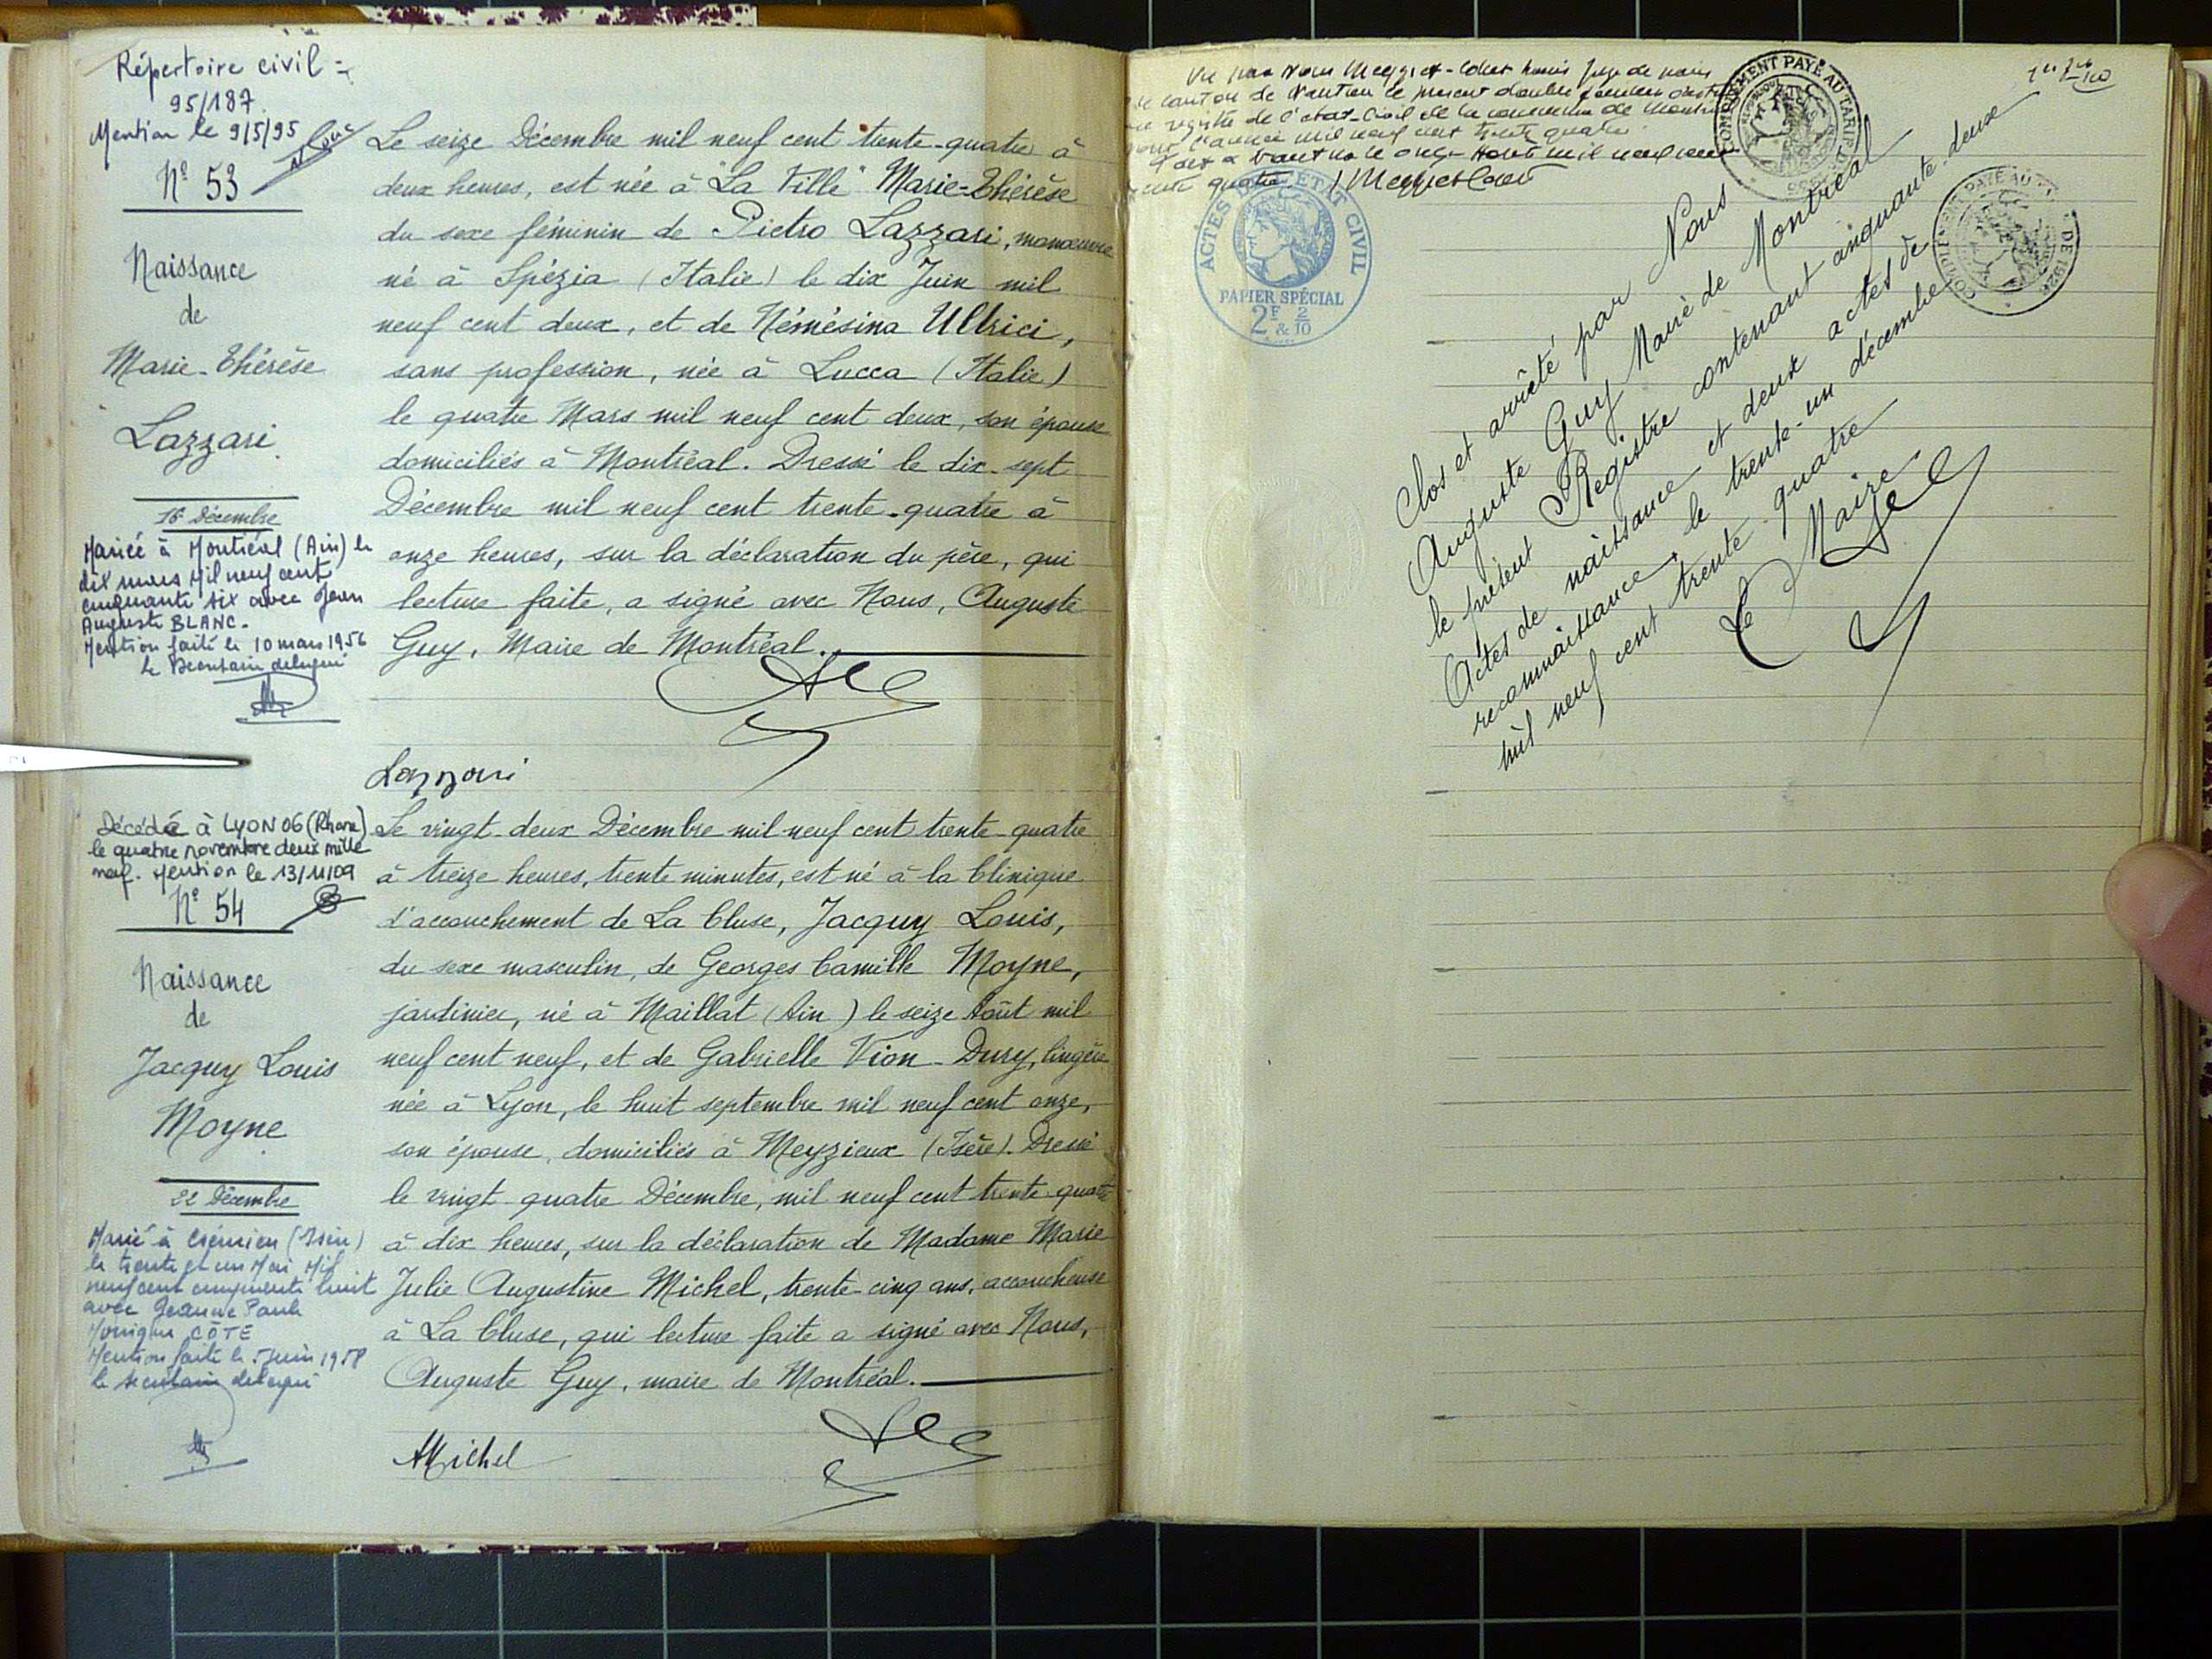 Répertoire civil :
95/187
Mention le 9/5/95
N° 53
Naissance
de
Marie-Thérèse
Lazzari
16 Décembre
Mariée à Montréal (Ain) le
dix mars Mil neuf cent
cinquante six avec Jean
Auguste BLANC.
Mention faite le 10 mars 1956
le Secrétaire délégué
Le seize Décembre mil neuf cent trente-quatre à
deux heures, est née à "La Ville" Marie-Thérèse
du sexe féminin de Pietro Lazzari, manœuvre
né à Spézia (Italie) le dix Juin mil
neuf cent deux, et de Némésina Ulhrici,
sans profession, née à Lucca (Italie)
le quatre Mars mil neuf cent deux, son épouse
domiciliés à Montréal. Dressé le dix-sept
Décembre mil neuf cent trente-quatre à
onze heures, sur la déclaration du père, qui
lecture faite, a signé avec Nous, Auguste
Guy, Maire de Montréal.
Lazzari
Décédé à LYON 06 (Rhone)
le quatre novembre deux mille
neuf. Mention le 13/11/09
N° 54
Naissance
de
Jacquy Louis
Moyne
22 Décembre
Marié à Crémieu (Isère)
le trente et un Mai Mil
neuf cent cinquante huit
avec Jeanne Paule
Monique CÔTE
Mention faite le 5 Juin 1958
le secrétaire délégué
Le vingt-deux Décembre mil neuf cent trente-quatre
à treize heures, trente minutes, est né à la Clinique
d'accouchement de La Cluse, Jacquy Louis,
du sexe masculin, de Georges Camille Moyne,
jardinier, né à Maillat (Ain) le seize Août mil
neuf cent neuf, et de Gabrielle Vion-Dury, lingère
née à Lyon, le huit septembre mil neuf cent onze,
son épouse, domiciliés à Meyzieux (Isère). Dressé
le vingt-quatre Décembre, mil neuf cent trente-quatre
à dix heures, sur la déclaration de Madame Marie
Julie Augustine Michel, trente-cinq ans, accoucheuse
à La Cluse, qui lecture faite a signé avec Nous,
Auguste Guy, maire de Montréal.
Michel
Vu par Nous juge de paix
canton de Nantua le présent double
registre de l'état-Civil de la commune de
pour l'année mil neuf cent trente quatre.
Fait à Nantua le onze Août mil neuf cent
trente quatre
COMPLÉMENT PAYÉ AU TARIF DE
ACTES DE L'ÉTAT CIVIL
PAPIER SPÉCIAL
2F & 2/10
COMPLÉMENT PAYÉ AU DE 1926
Clos et arrêté par Nous
Auguste Guy Maire de Montréal
le présent Registre contenant cinquante-deux
Actes de naissance et deux actes de
reconnaissance, le trente-un décembre
mil neuf cent trente-quatre
Le Maire